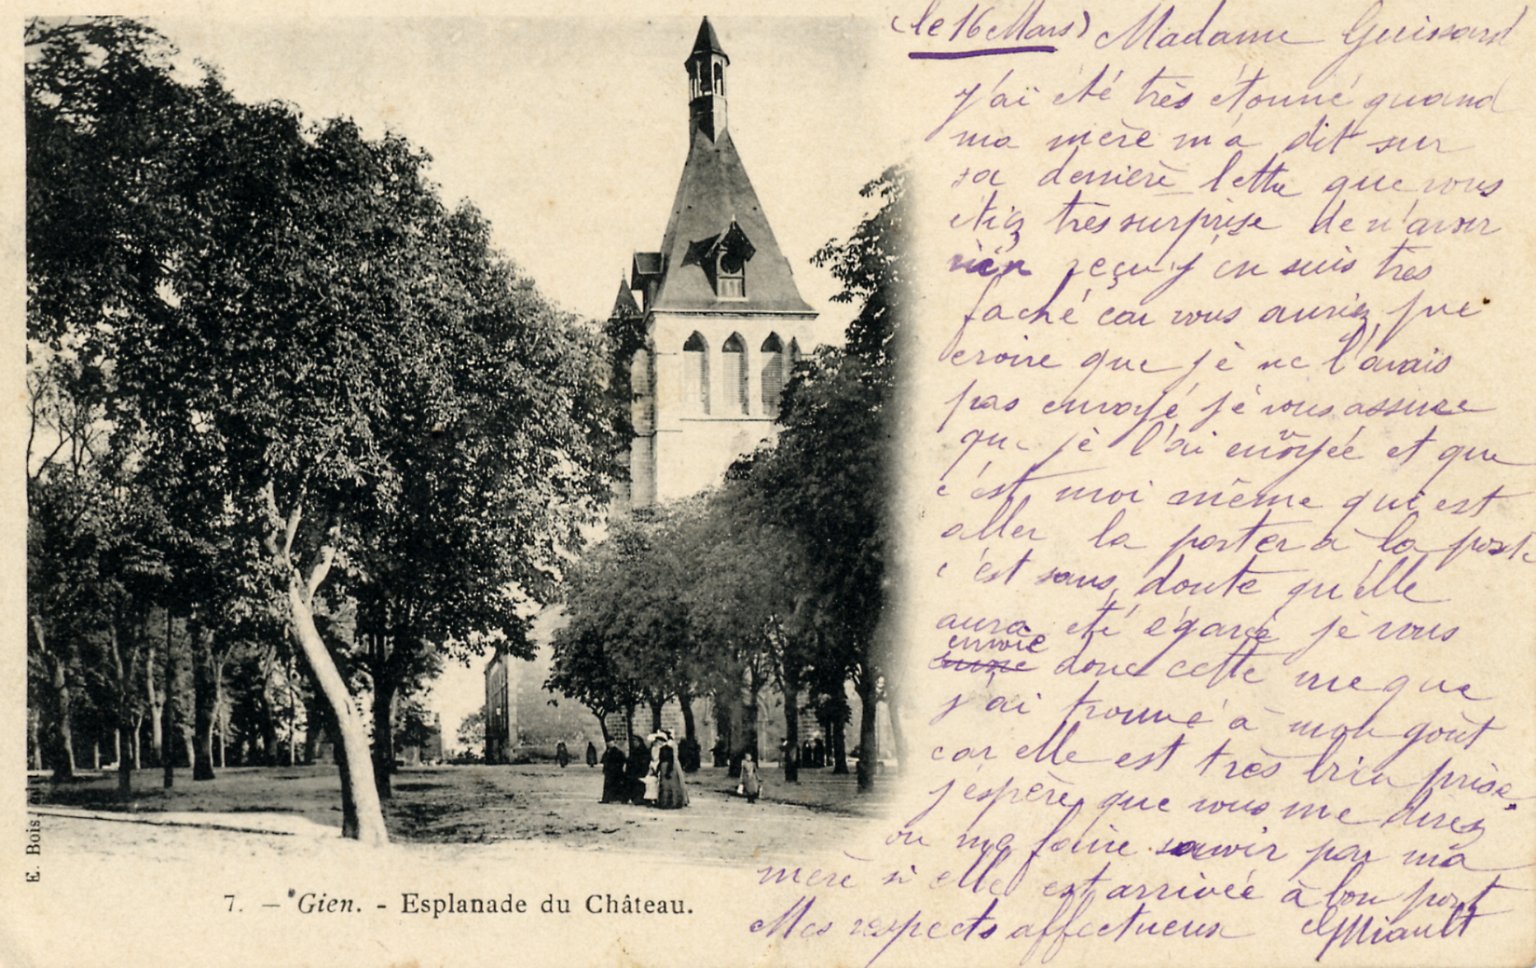 (le 16 Mars) Madame Guissard
j'ai été très étonné quand
ma mère m'a dit sur
sa dernière lettre que vous
étiez très surprise de n'avoir
rien reçu j'en suis très
faché car vous auriez pue
croire que jè ne l'avais
pas envoyé jè vous assure
que jè l'ai envoyée et que
c'est moi même qui est
aller la porter à la poste
c'est sans doute qu'elle
aura été égaré jè vous
envoie donc cette vue que
j'ai trouvé à mon goût
car elle est très bien prise.
j'éspère que vous me direz
ou me faire savoir par ma
mère si elle est arrivée à bon port
Mes respects affectueux GMiault
E. Bois
7. — Gien. - Esplanade du Château.